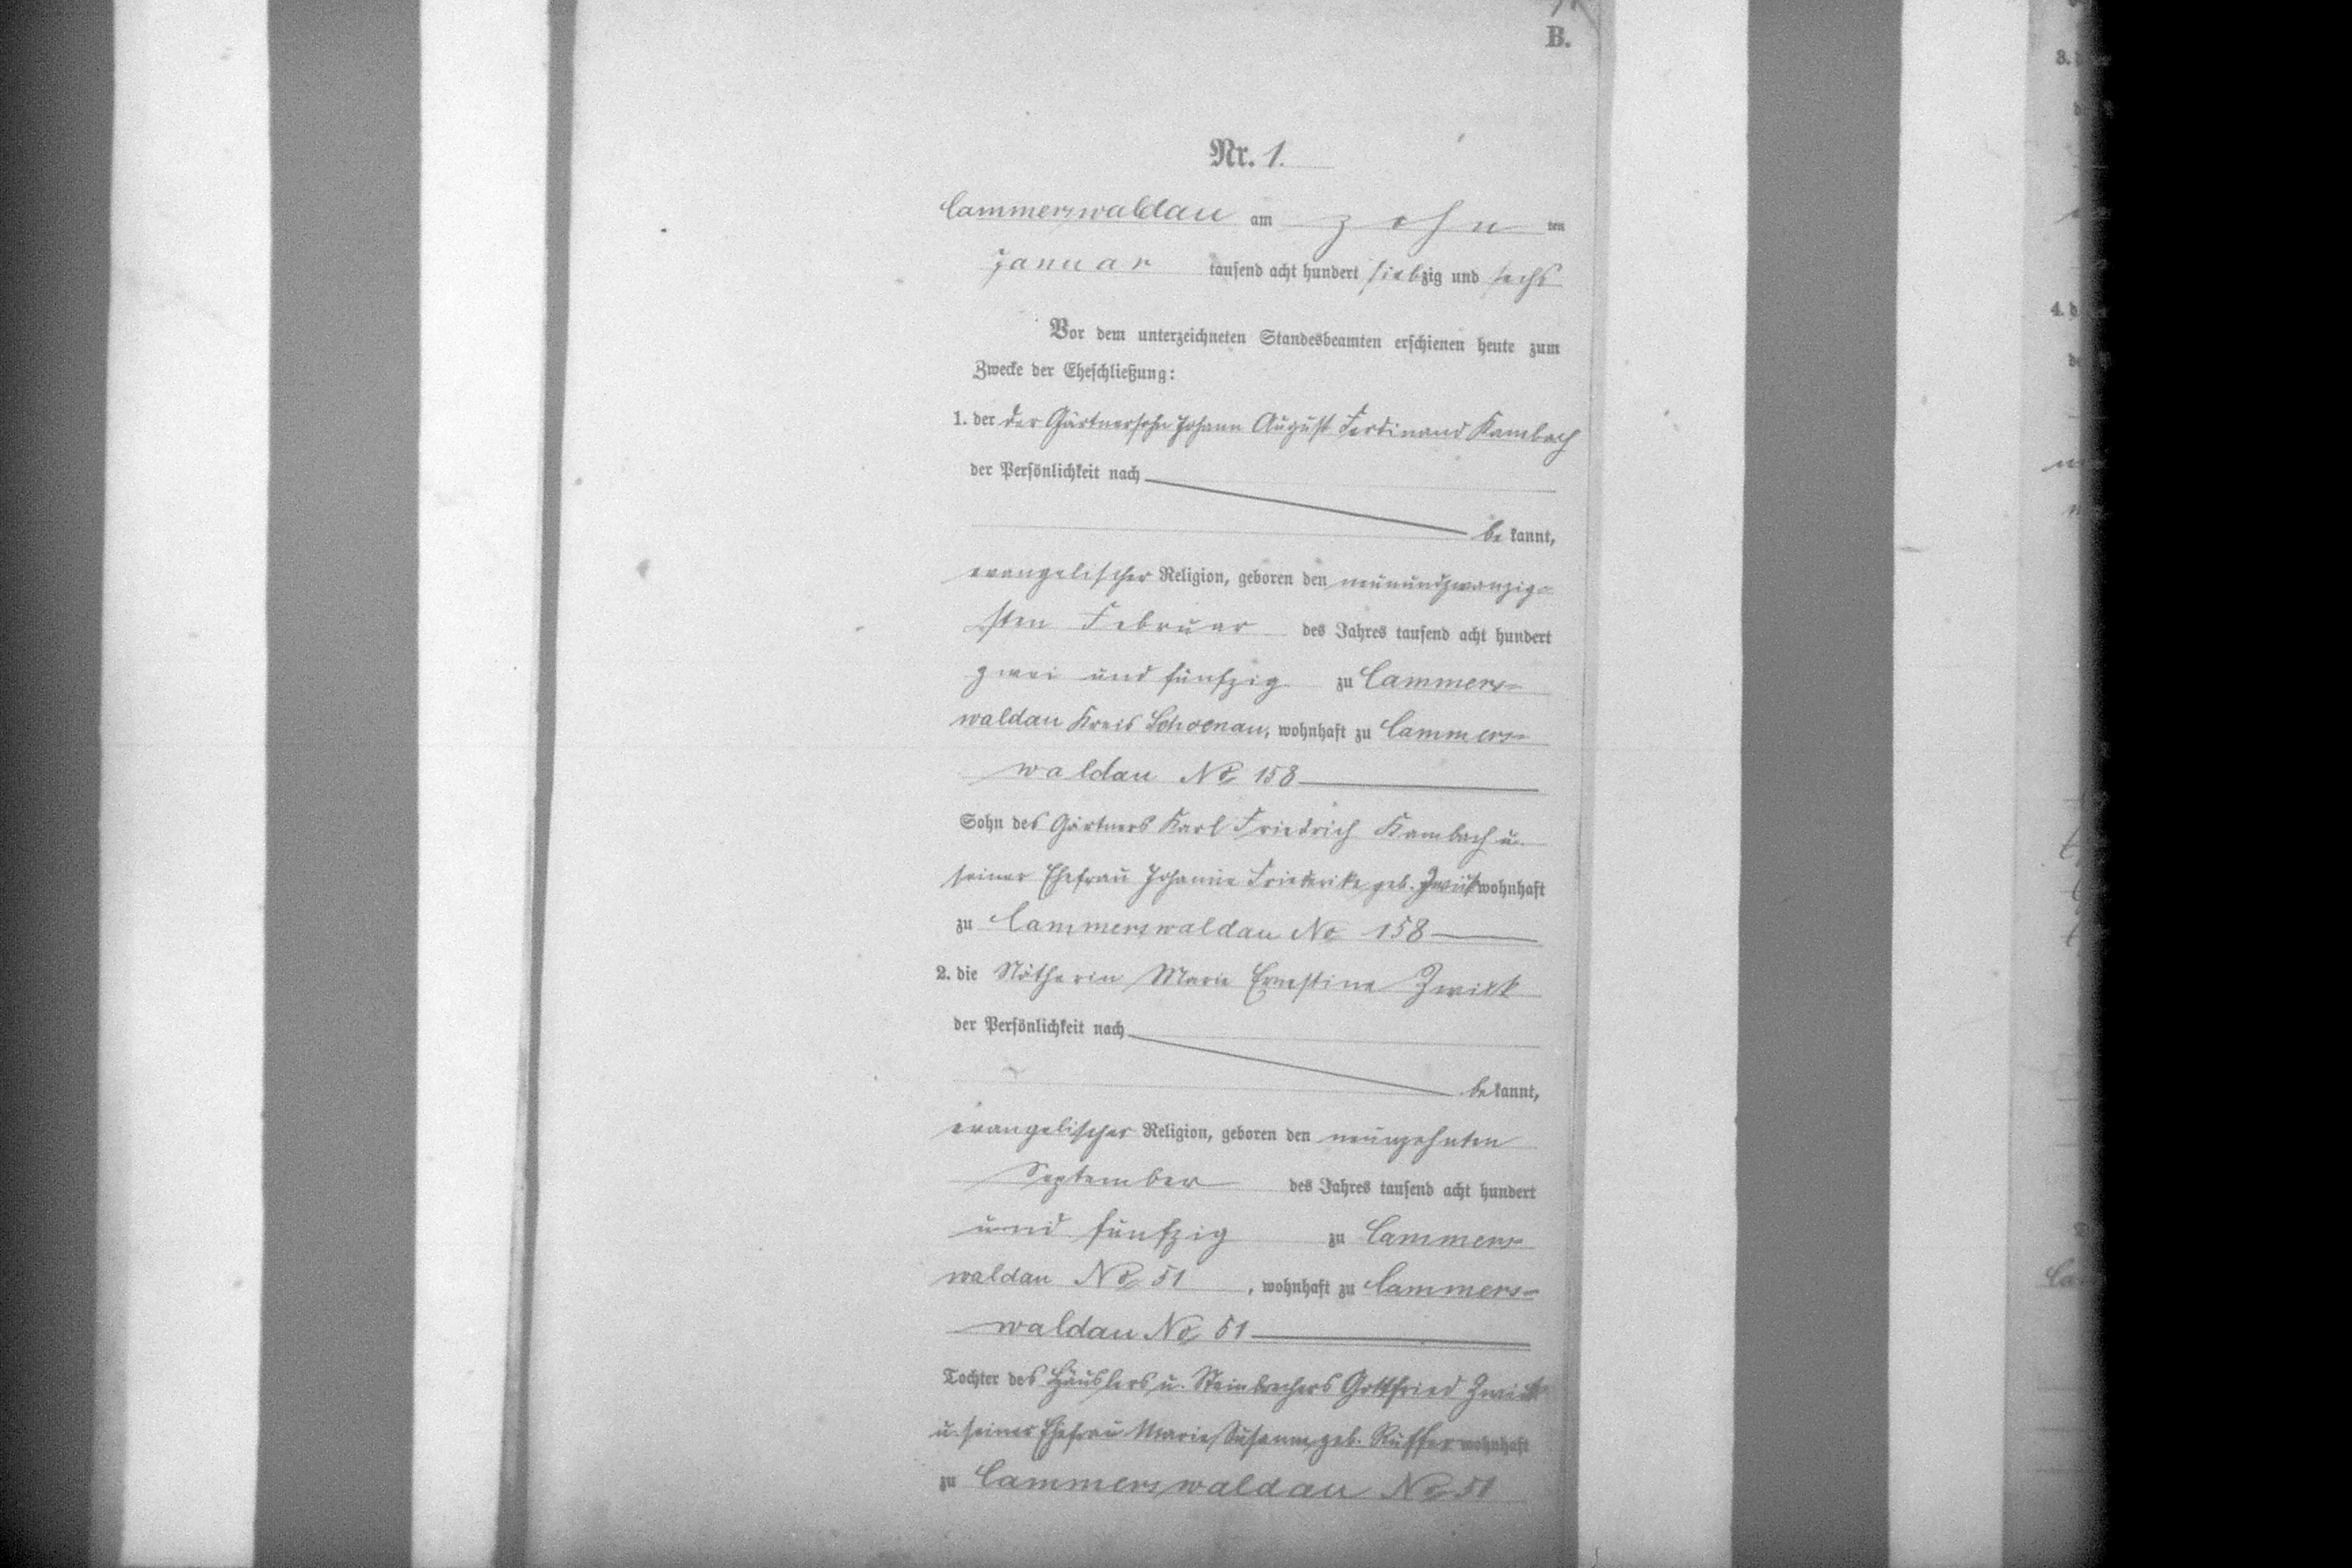 B.
Nr. 1.
Cammerswaldau am zehn ten
Januar tausend acht hundert siebzig und sechs
Vor dem unterzeichneten Standesbeamten erschienen heute zum
Zwecke der Eheschließung:
1. der der Gärtnersohn Johann August Ferdinand Kambach
der Persönlichkeit nach
be kannt,
evangelischer Religion, geboren den neunundzwanzig-
sten Februar des Jahres tausend acht hundert
zwei und fünfzig zu Cammers=
waldau Kreis Schoenau, wohnhaft zu Cammers=
waldau No 158
Sohn des Gärtners Karl Friedrich Kambach u.
seiner Ehefrau Johanne Friederike geb. Zwick wohnhaft
zu Cammerswaldau No 158
2. die Nätherin Marie Ernestine Zwick
der Persönlichkeit nach
be kannt,
evangelischer Religion, geboren den neunzehnten
September des Jahres tausend acht hundert
und fünfzig zu Cammers=
waldau No 51, wohnhaft zu Cammers=
waldau No 51
Tochter des Häuslers u. Steinbrechers Gottfried Zwick
u. seiner Ehefrau Marie Susanne geb. Rüffer wohnhaft
zu Cammerswaldau No 51
3.
4.